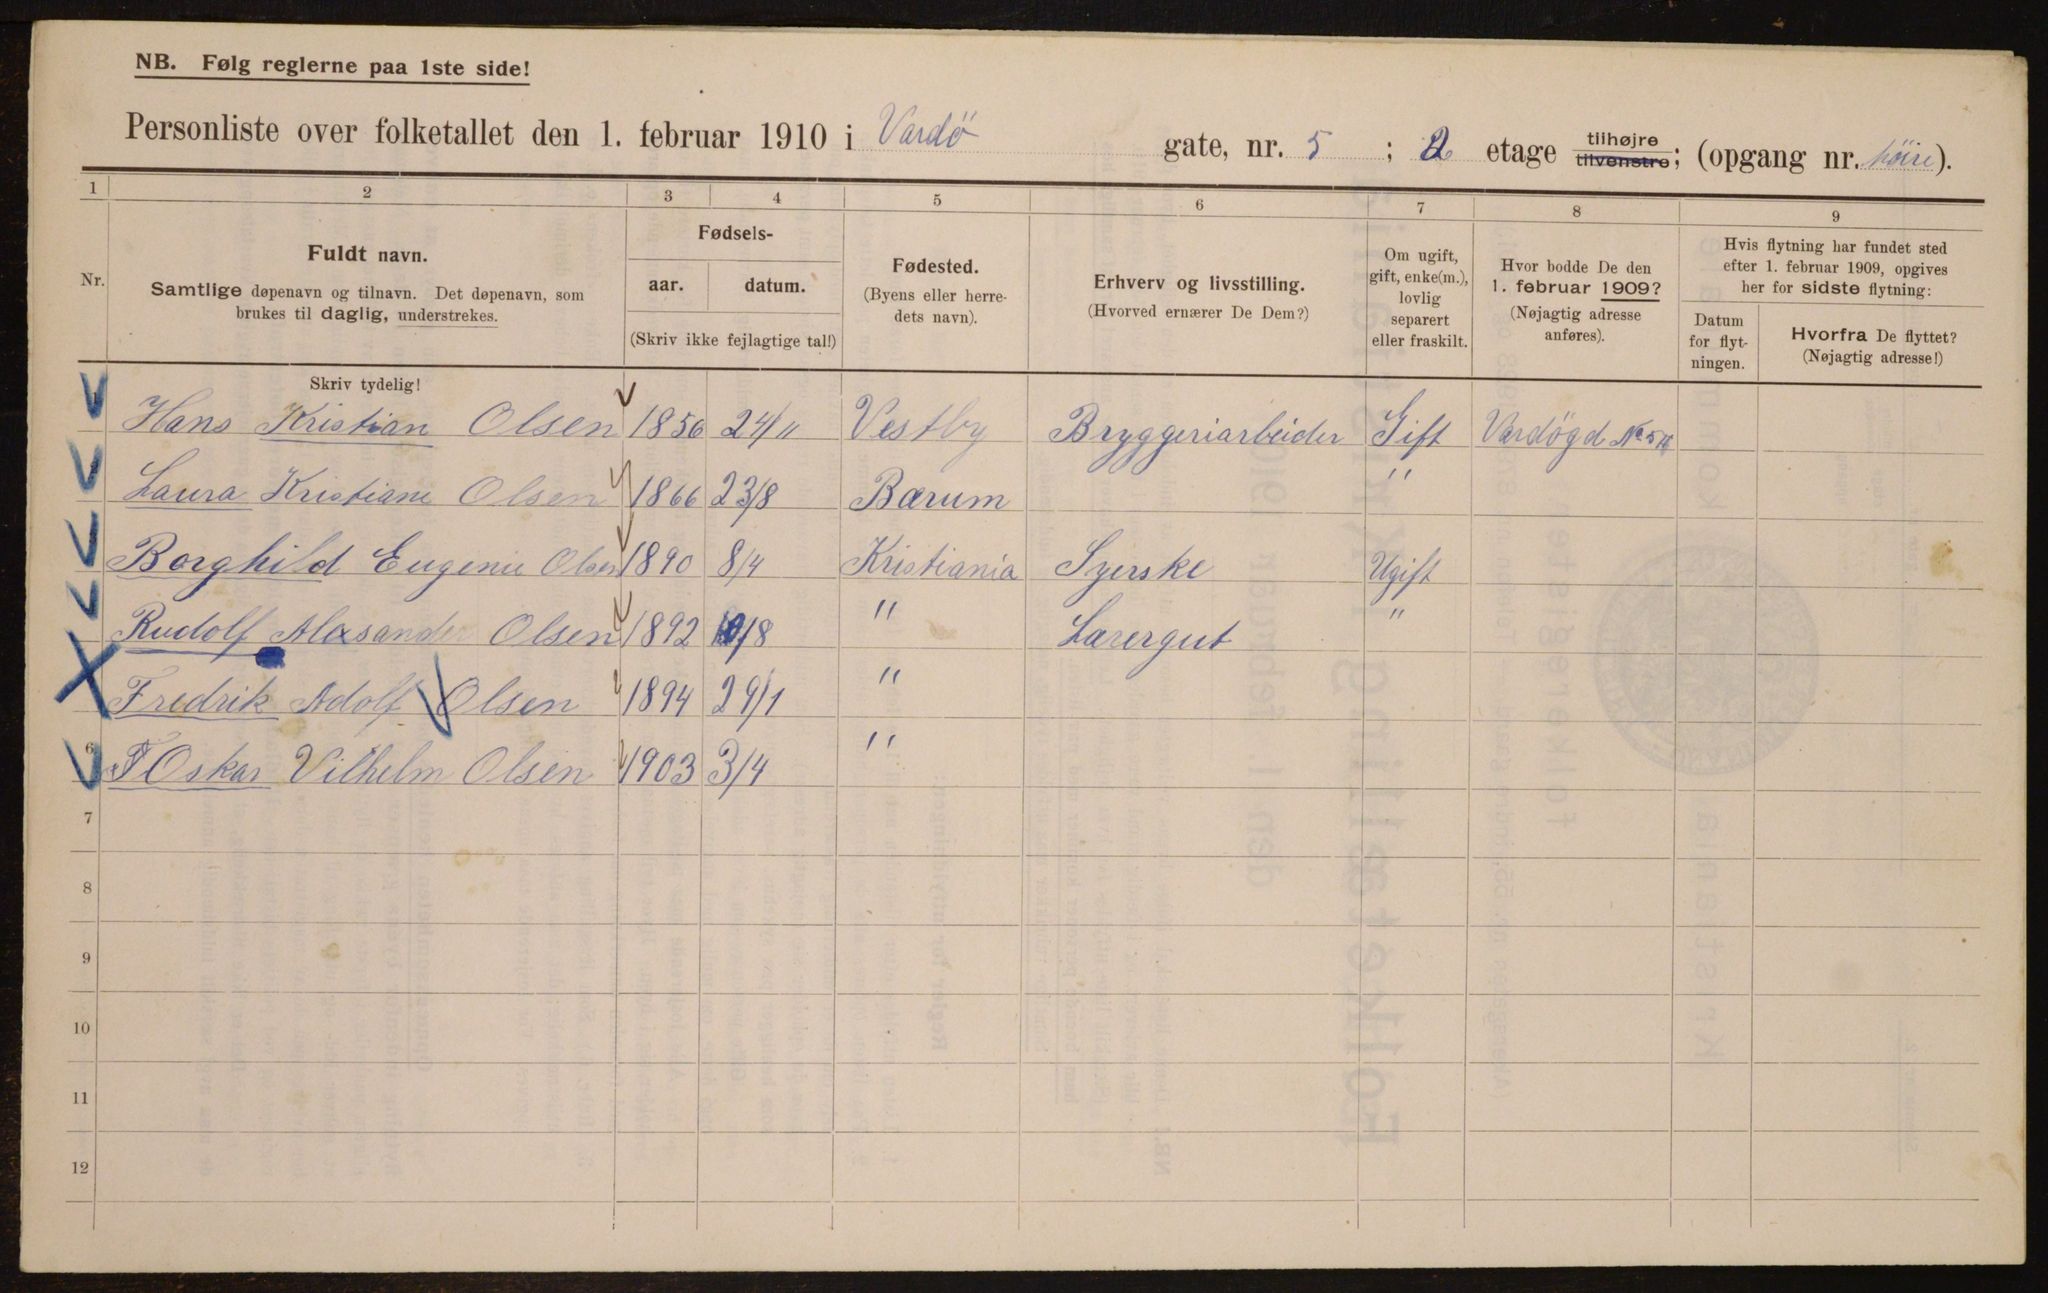 NB. Følg reglerne paa 1ste side!
Personliste over folketallet den 1. februar 1910 i Vardö gate, nr. 5 ; 2 etage tilhøjre tilvenstre; (opgang nr. höire).
1 2 3 4 5 6 7 8 9
Nr.
Fuldt navn.
Samtlige døpenavn og tilnavn. Det døpenavn, som
brukes til daglig, understrekes.
Skriv tydelig!
Fødsels-
aar. datum.
(Skriv ikke fejlagtige tal!)
Fødested.
(Byens eller herre-
dets navn).
Erhverv og livsstilling.
(Hvorved ernærer De Dem?)
Om ugift,
gift, enke(m.),
lovlig
separert
eller fraskilt.
Hvor bodde De den
1. februar 1909?
(Nøjagtig adresse
anføres).
Hvis flytning har fundet sted
efter 1. februar 1909, opgives
her for sidste flytning:
Datum
for flyt-
ningen.
Hvorfra De flyttet?
(Nøjagtig adresse!)
Hans Kristian Olsen 1856 24/11 Vestby Bryggeriarbeider Gift Vardögd No 5
Laura Kristiane Olsen 1866 23/8 Bærum "
Borghild Eugenie Olsen 1890 8/4 Kristiania Syerske Ugift
Rudolf Alexsander Olsen 1892 /8 " Lærergut "
Fredrik Adolf Olsen 1894 29/1 "
6 Oskar Vilhelm Olsen 1903 3/4 "
7
8
9
10
11
12